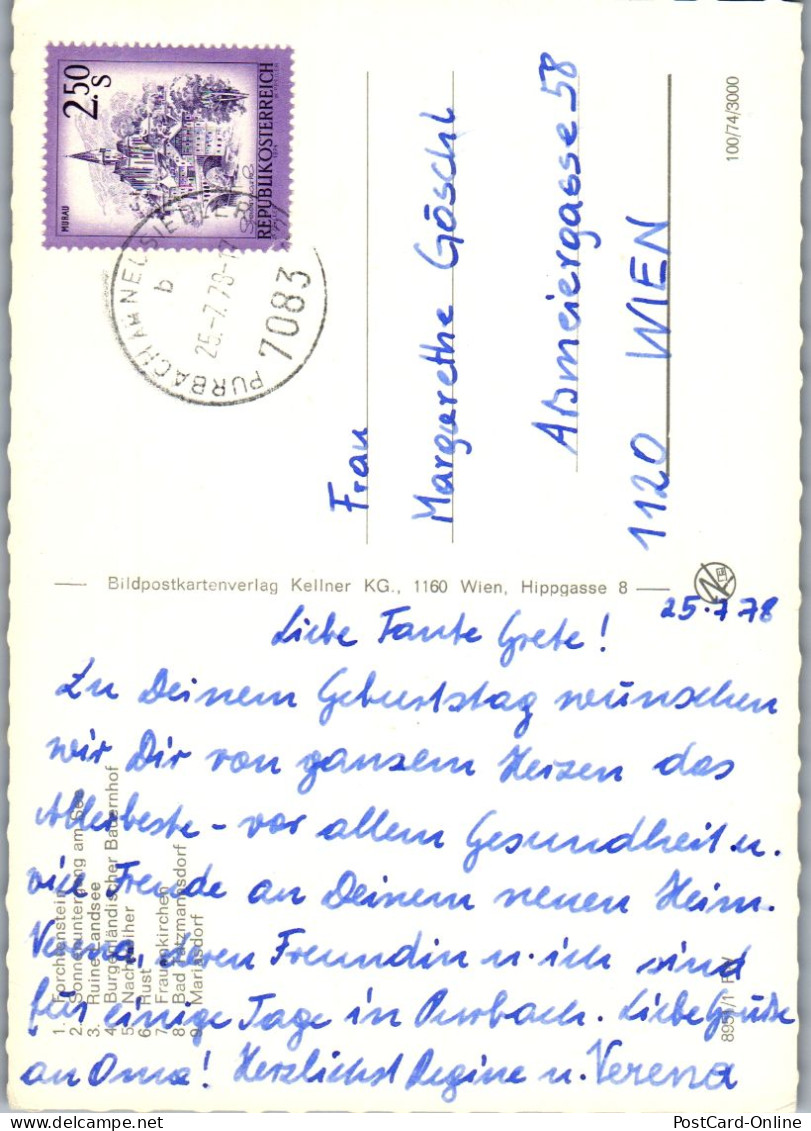 2.50 S
MURAU
REPUBLIK ÖSTERREICH
PURBACH AM NEUSIEDLER SEE
b
25.-7.78-12
7083
100/74/3000
Frau
Margarethe Göschl
Aßmeiergasse 58
1120 WIEN
Bildpostkartenverlag Kellner KG., 1160 Wien, Hippgasse 8
25.7.78
Liebe Tante Grete!
Zu Deinem Geburtstag wünschen
wir Dir von ganzem Herzen das
Allerbeste - vor allem Gesundheit u.
viel Freude an Deinem neuen Heim.
Verena, deren Freundin u. ich sind
für einige Tage in Purbach. Liebe Grüße
an Oma! Herzlichst Regine u. Verena
1. Forchtenstein
2. Sonnenuntergang am See
3. Ruine Landsee
4. Burgenländischer Bauernhof
5. Nachtreiher
6. Rust
7. Frauenkirchen
8. Bad Tatzmannsdorf
9. Mariasdorf
PostCard-Online
PostCard-Online.com